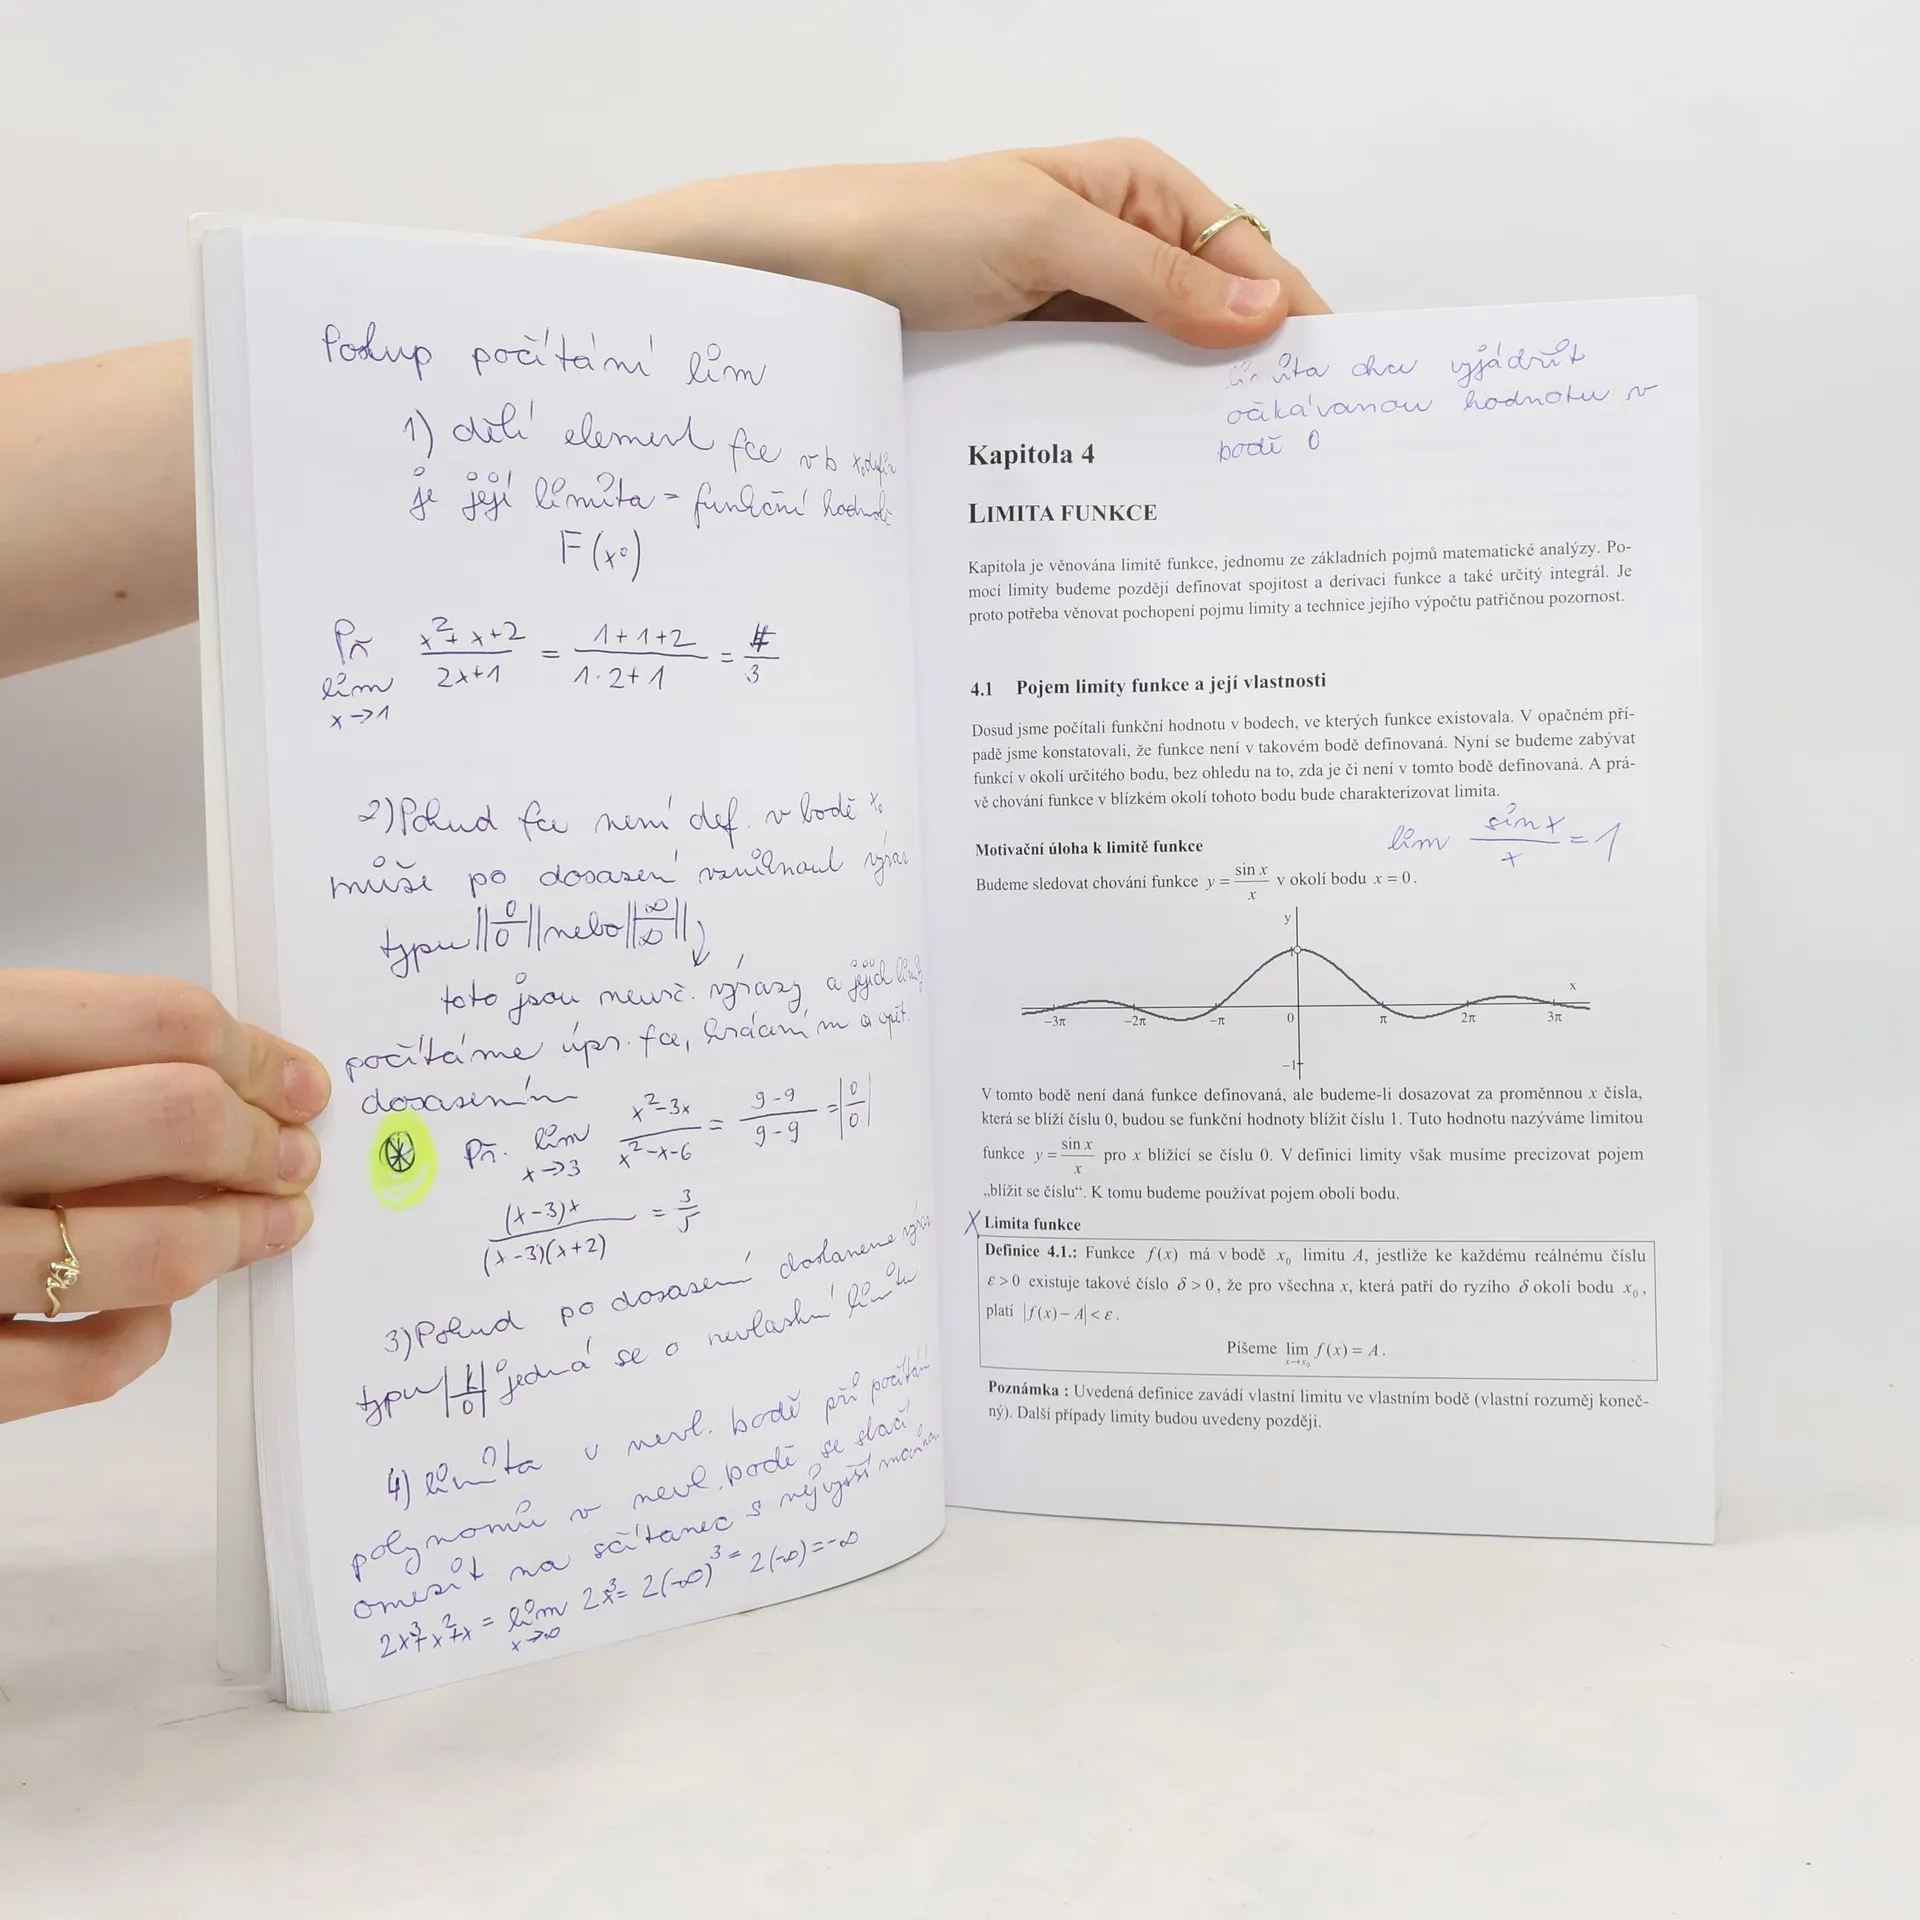 Postup počítání lim
1) dělí element fce v b x₀ defin
je její limita = funkční hodnotě
F(x⁰)
Př x²+x+2 / 2x+1 = 1+1+2 / 1·2+1 = 4/3
lim
x→1
2) Pokud fce není def. v bodě x₀
může po dosazení vzniknout výraz
typu ||0/0|| nebo ||∞/∞||
toto jsou neurč. výrazy a jejich limity
počítáme úpr. fce, krácením a opět.
dosazením
Př. lim x→3 x²-3x / x²-x-6 = 9-9 / 9-9 = |0/0|
(x-3)x / (x-3)(x+2) = 3/5
3) Pokud po dosazení dostaneme výraz
typu |k/0| jedná se o nevlastní limitu
4) limita v nevl. bodě při počítání
polynomů v nevl. bodě se stačí
omezit na sčítanec s nejvyšší mocninou
2x³+x²+x = lim x→∞ 2x³ = 2(-∞)³ = 2(-∞) = -∞
limita chce vyjádřit
očikávanou hodnotu v
bodě 0
Kapitola 4
LIMITA FUNKCE
Kapitola je věnována limitě funkce, jednomu ze základních pojmů matematické analýzy. Po-
mocí limity budeme později definovat spojitost a derivaci funkce a také určitý integrál. Je
proto potřeba věnovat pochopení pojmu limity a technice jejího výpočtu patřičnou pozornost.
4.1 Pojem limity funkce a její vlastnosti
Dosud jsme počítali funkční hodnotu v bodech, ve kterých funkce existovala. V opačném pří-
padě jsme konstatovali, že funkce není v takovém bodě definovaná. Nyní se budeme zabývat
funkcí v okolí určitého bodu, bez ohledu na to, zda je či není v tomto bodě definovaná. A prá-
vě chování funkce v blízkém okolí tohoto bodu bude charakterizovat limita.
lim sin x / x = 1
Motivační úloha k limitě funkce
Budeme sledovat chování funkce y = sin x / x v okolí bodu x = 0.
y
1
x
−3π −2π −π 0 π 2π 3π
−1
V tomto bodě není daná funkce definovaná, ale budeme-li dosazovat za proměnnou x čísla,
která se blíží číslu 0, budou se funkční hodnoty blížit číslu 1. Tuto hodnotu nazýváme limitou
funkce y = sin x / x pro x blížící se číslu 0. V definici limity však musíme precizovat pojem
„blížit se číslu“. K tomu budeme používat pojem obolí bodu.
X Limita funkce
Definice 4.1.: Funkce f(x) má v bodě x₀ limitu A, jestliže ke každému reálnému číslu
ε > 0 existuje takové číslo δ > 0, že pro všechna x, která patří do ryzího δ okolí bodu x₀,
platí |f(x) − A| < ε.
Píšeme lim x→x₀ f(x) = A.
Poznámka : Uvedená definice zavádí vlastní limitu ve vlastním bodě (vlastní rozuměj koneč-
ný). Další případy limity budou uvedeny později.